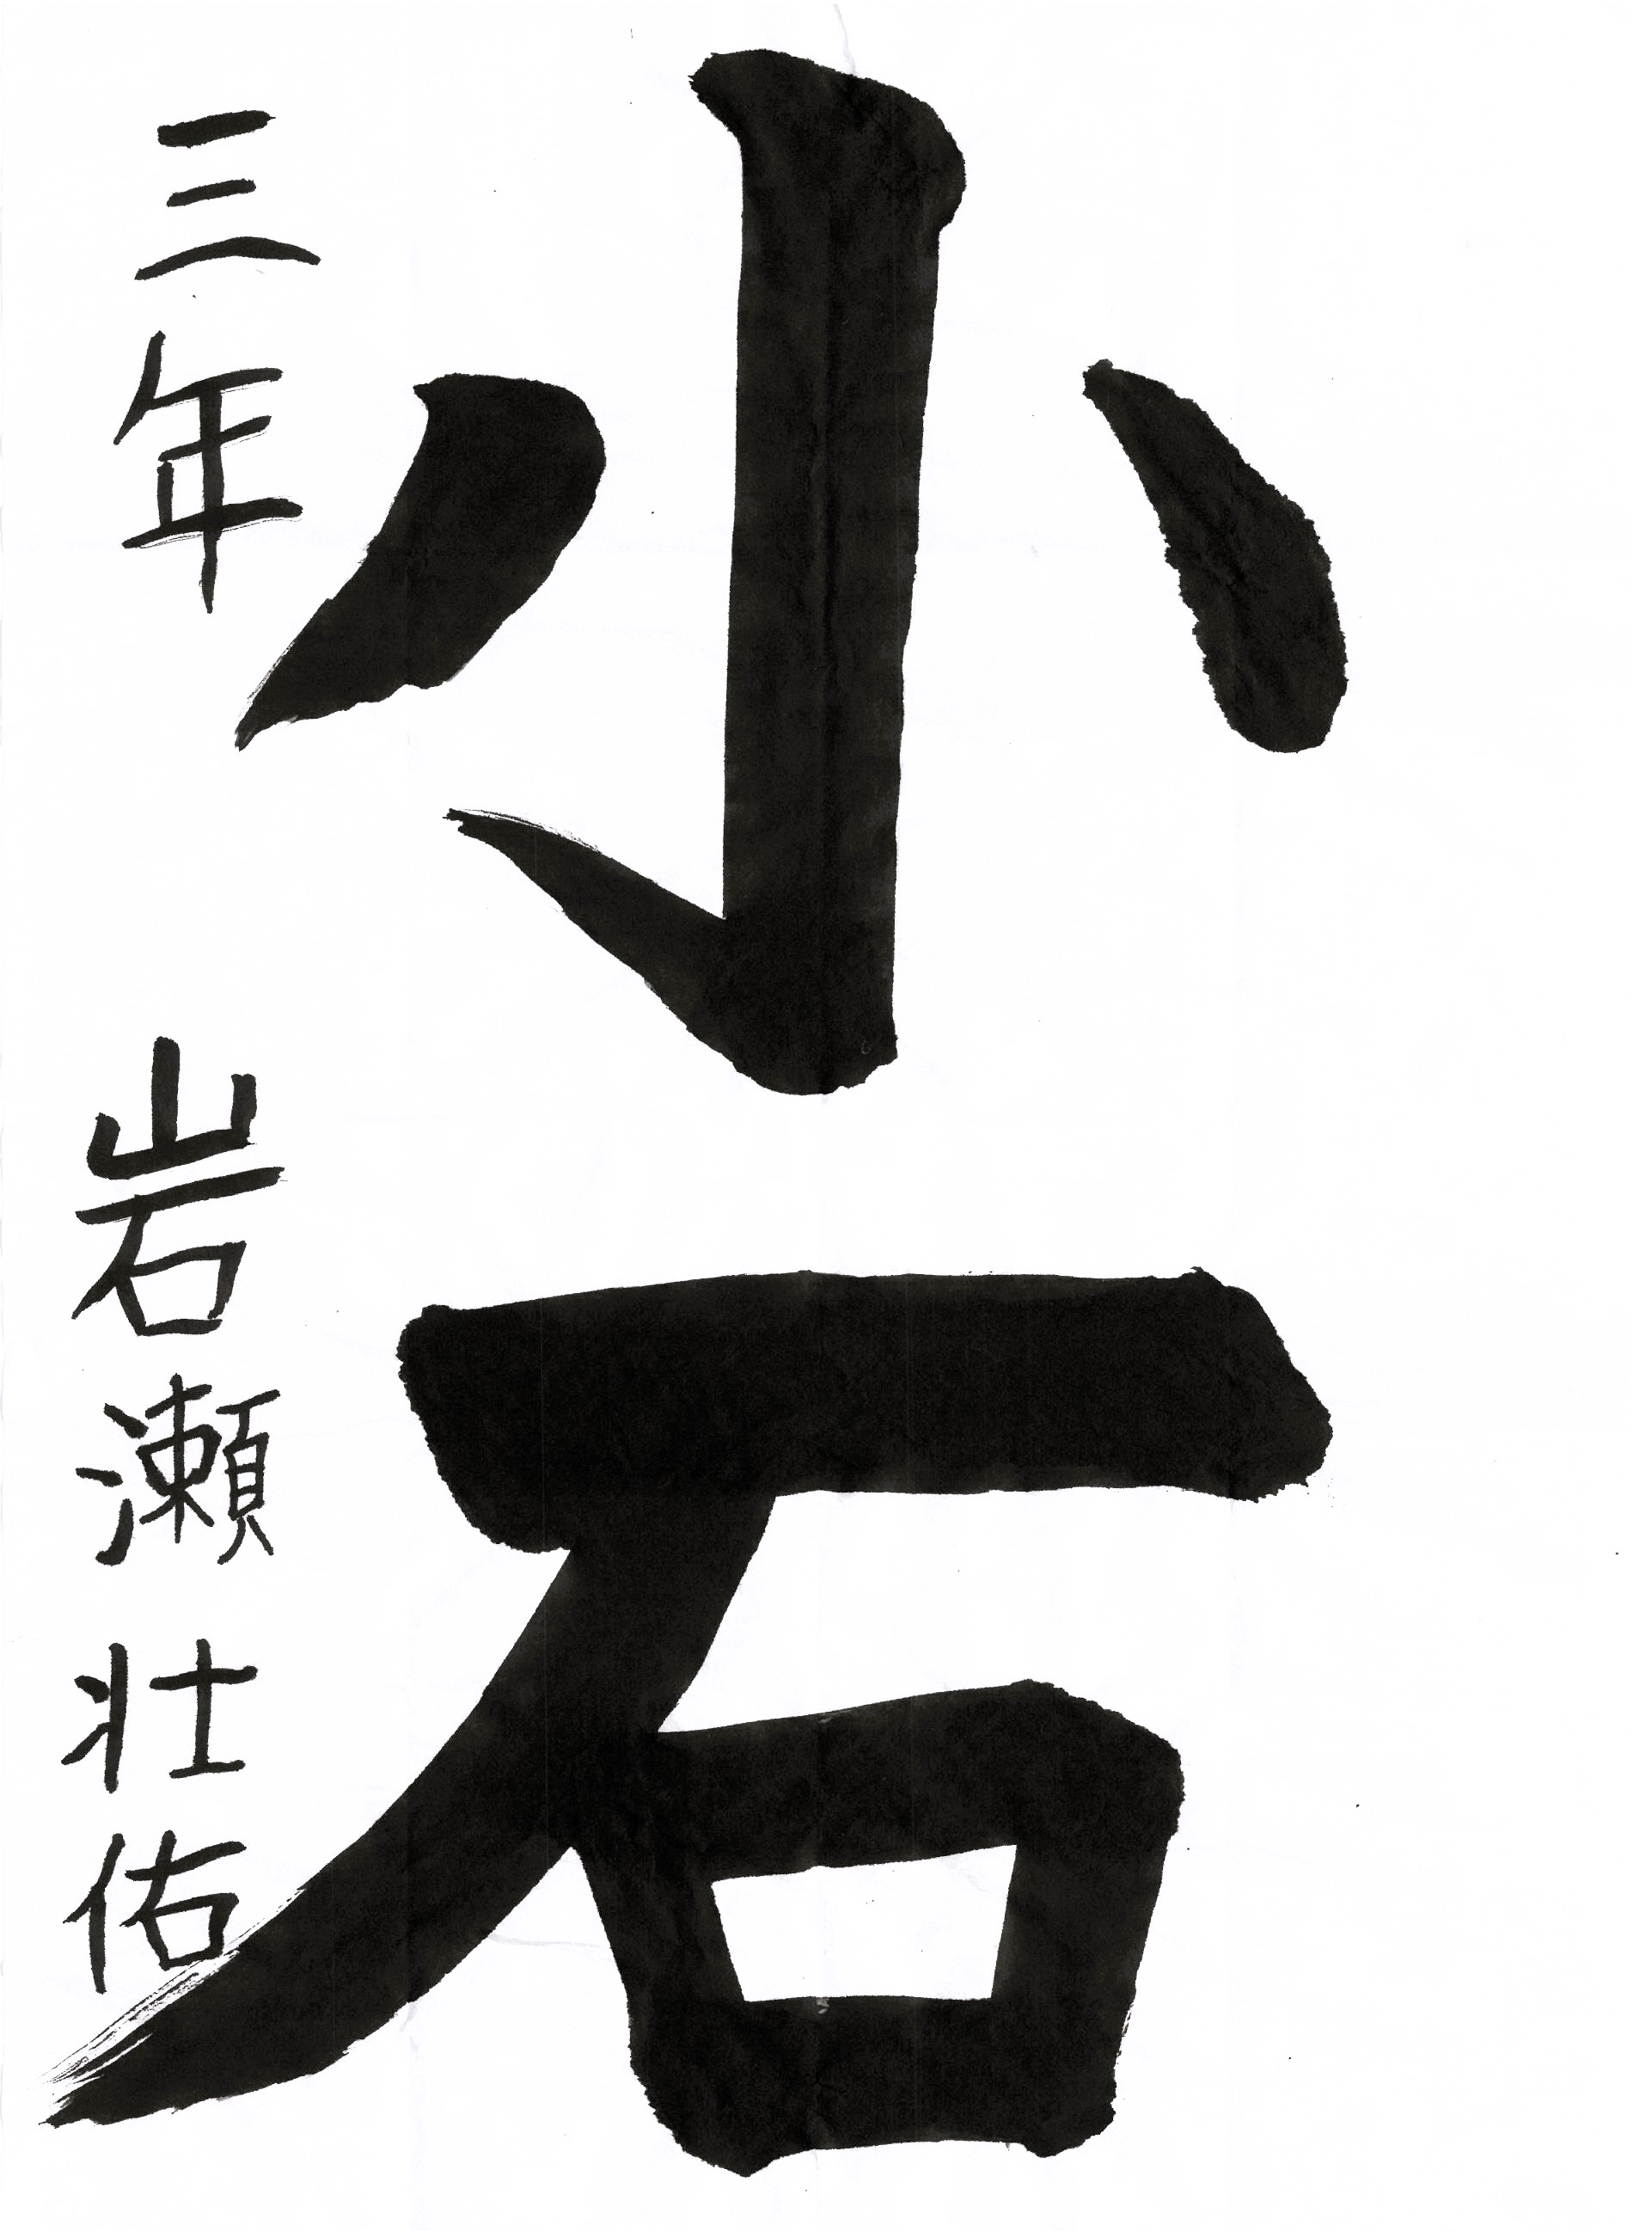 小石
三年 岩瀬壮佑